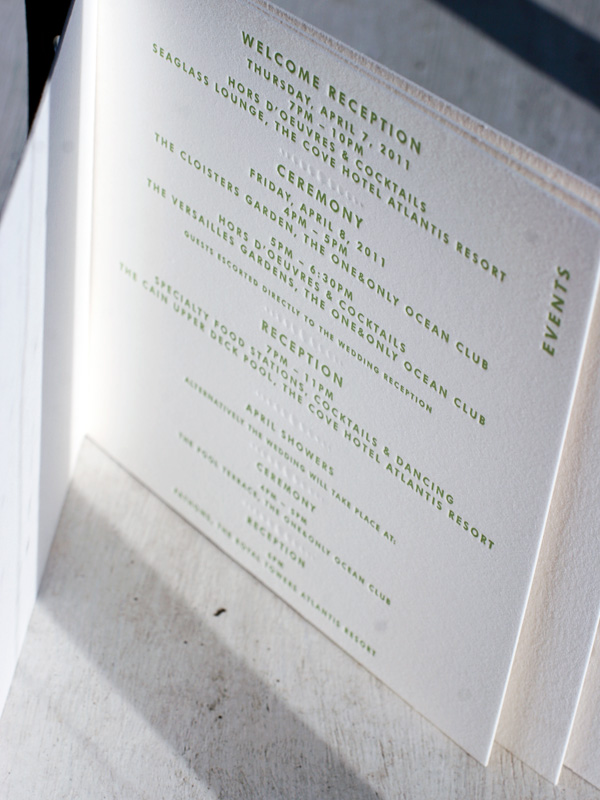 WELCOME RECEPTION
THURSDAY, APRIL 7, 2011
7PM - 10PM
HORS D'OEUVRES & COCKTAILS
SEAGLASS LOUNGE, THE COVE HOTEL ATLANTIS RESORT
CEREMONY
FRIDAY, APRIL 8, 2011
4PM - 5PM
THE CLOISTERS GARDEN, THE ONE&ONLY OCEAN CLUB
5PM - 6:30PM
HORS D'OEUVRES & COCKTAILS
THE VERSAILLES GARDENS, THE ONE&ONLY OCEAN CLUB
GUESTS ESCORTED DIRECTLY TO THE WEDDING RECEPTION
RECEPTION
7PM - 11PM
SPECIALTY FOOD STATIONS, COCKTAILS & DANCING
THE CAIN UPPER DECK POOL, THE COVE HOTEL ATLANTIS RESORT
APRIL SHOWERS
ALTERNATIVELY THE WEDDING WILL TAKE PLACE AT:
CEREMONY
4PM - 5PM
THE POOL TERRACE, THE ONE&ONLY OCEAN CLUB
RECEPTION
6PM
FATHOMS, THE ROYAL TOWERS ATLANTIS RESORT
EVENTS